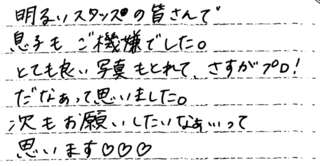 明るいスタンスの皆さんで
息子もご機嫌でした。
とても良い写真もとれて、さすがプロ!
だなあって思いました。
次もお願いしたいなぁぃって
思います♡♡♡